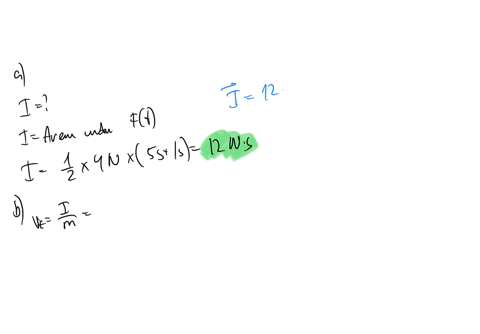 a)
I = ?
I = Area under F(t)
I = 1/2 × 4N × (5s + 1s) = 12 N·s
I⃗ = 12
b) v_f = I/m =